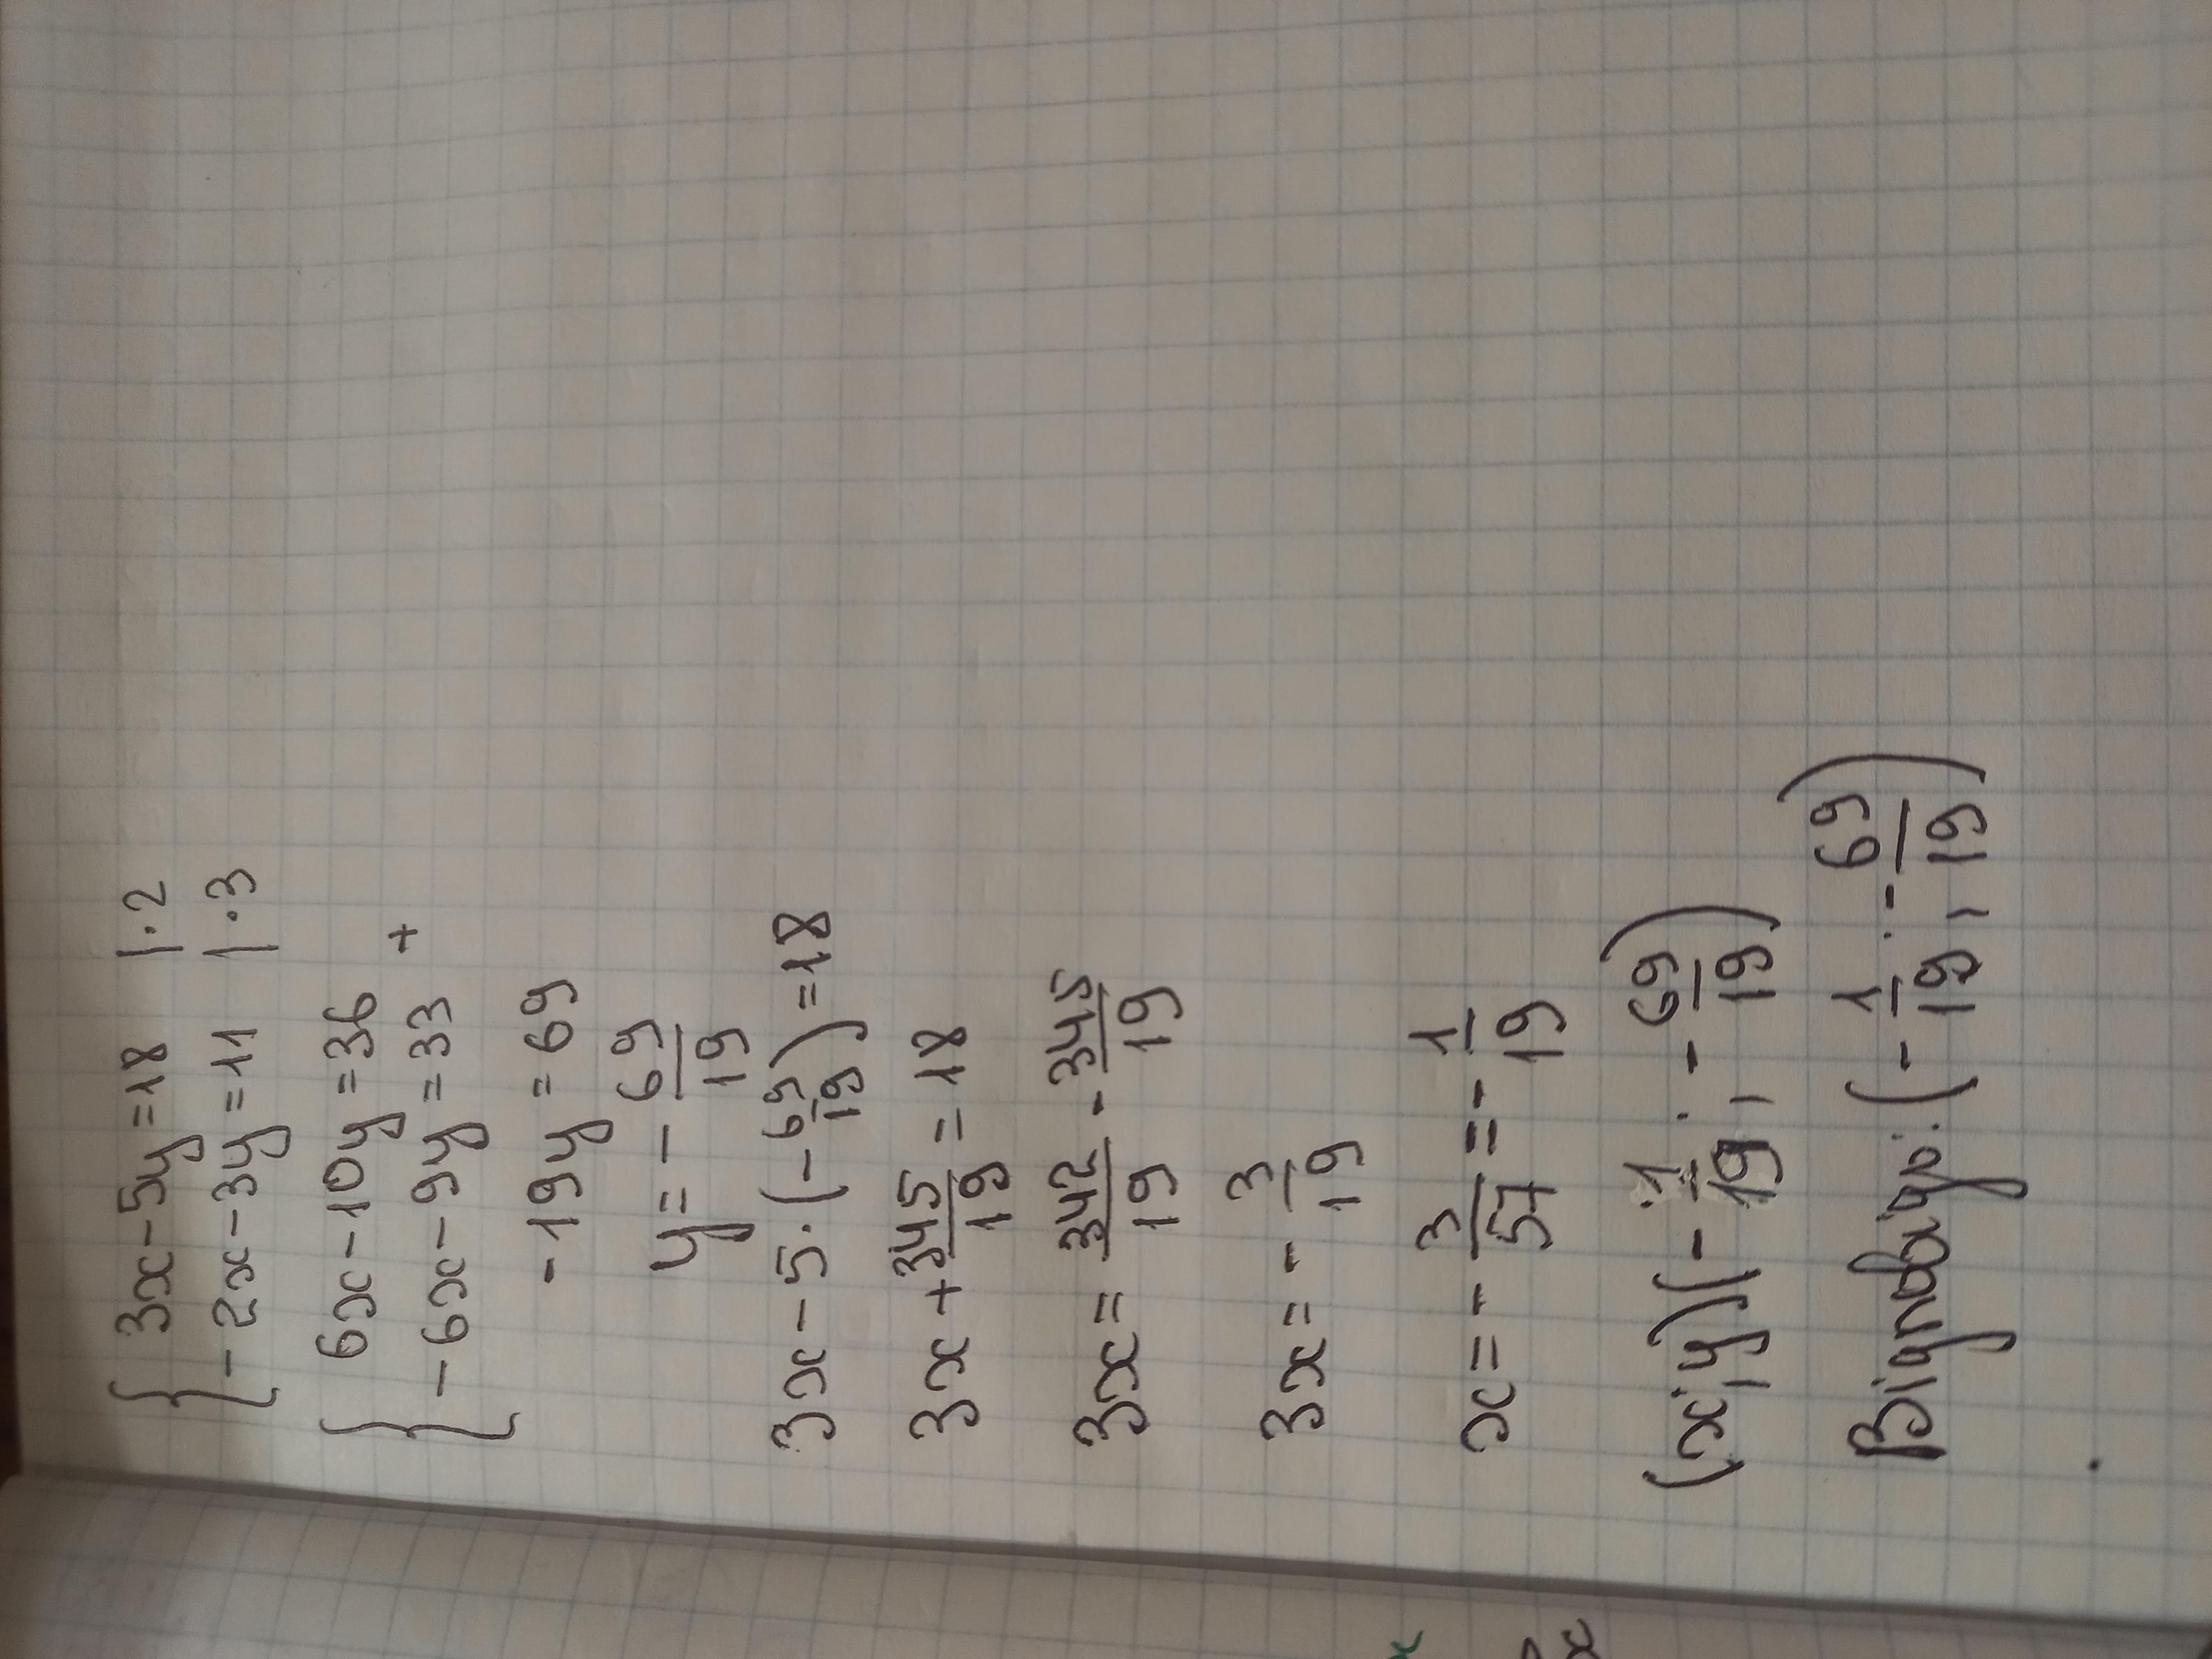 { 3x-5y=18 |·2
{ -2x-3y=11 |·3
{ 6x-10y=36
{ -6x-9y=33 +
-19y=69
y=-69/19
3x-5·(-69/19)=18
3x+345/19=18
3x=342/19-345/19
3x=-3/19
x=-3/57=-1/19
(x;y)(-1/19;-69/19)
Відповідь:(-1/19;-69/19)
x
x